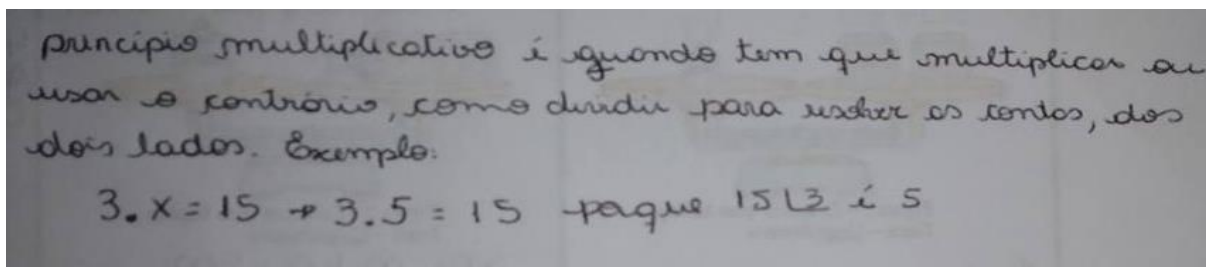 princípio multiplicativo é quando tem que multiplicar ou
usar o contrário, como dividir para resolver as contas, dos
dois lados. Exemplo:
3.x = 15 → 3.5 = 15 porque 15⌊3 é 5